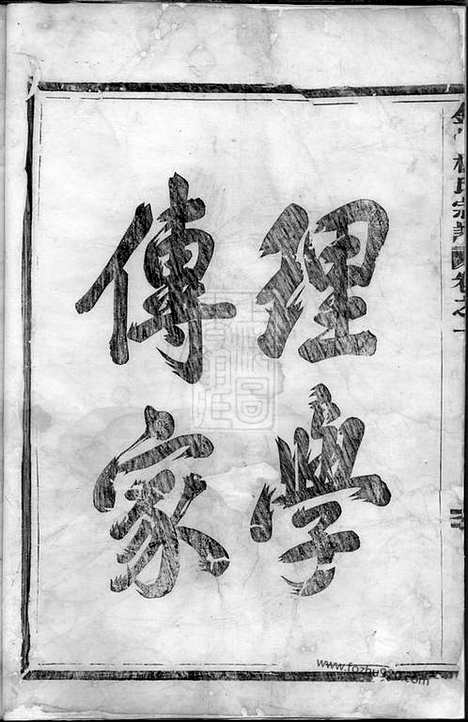 理學
傳家
氏宗譜
卷之一
www.fozhu920.com